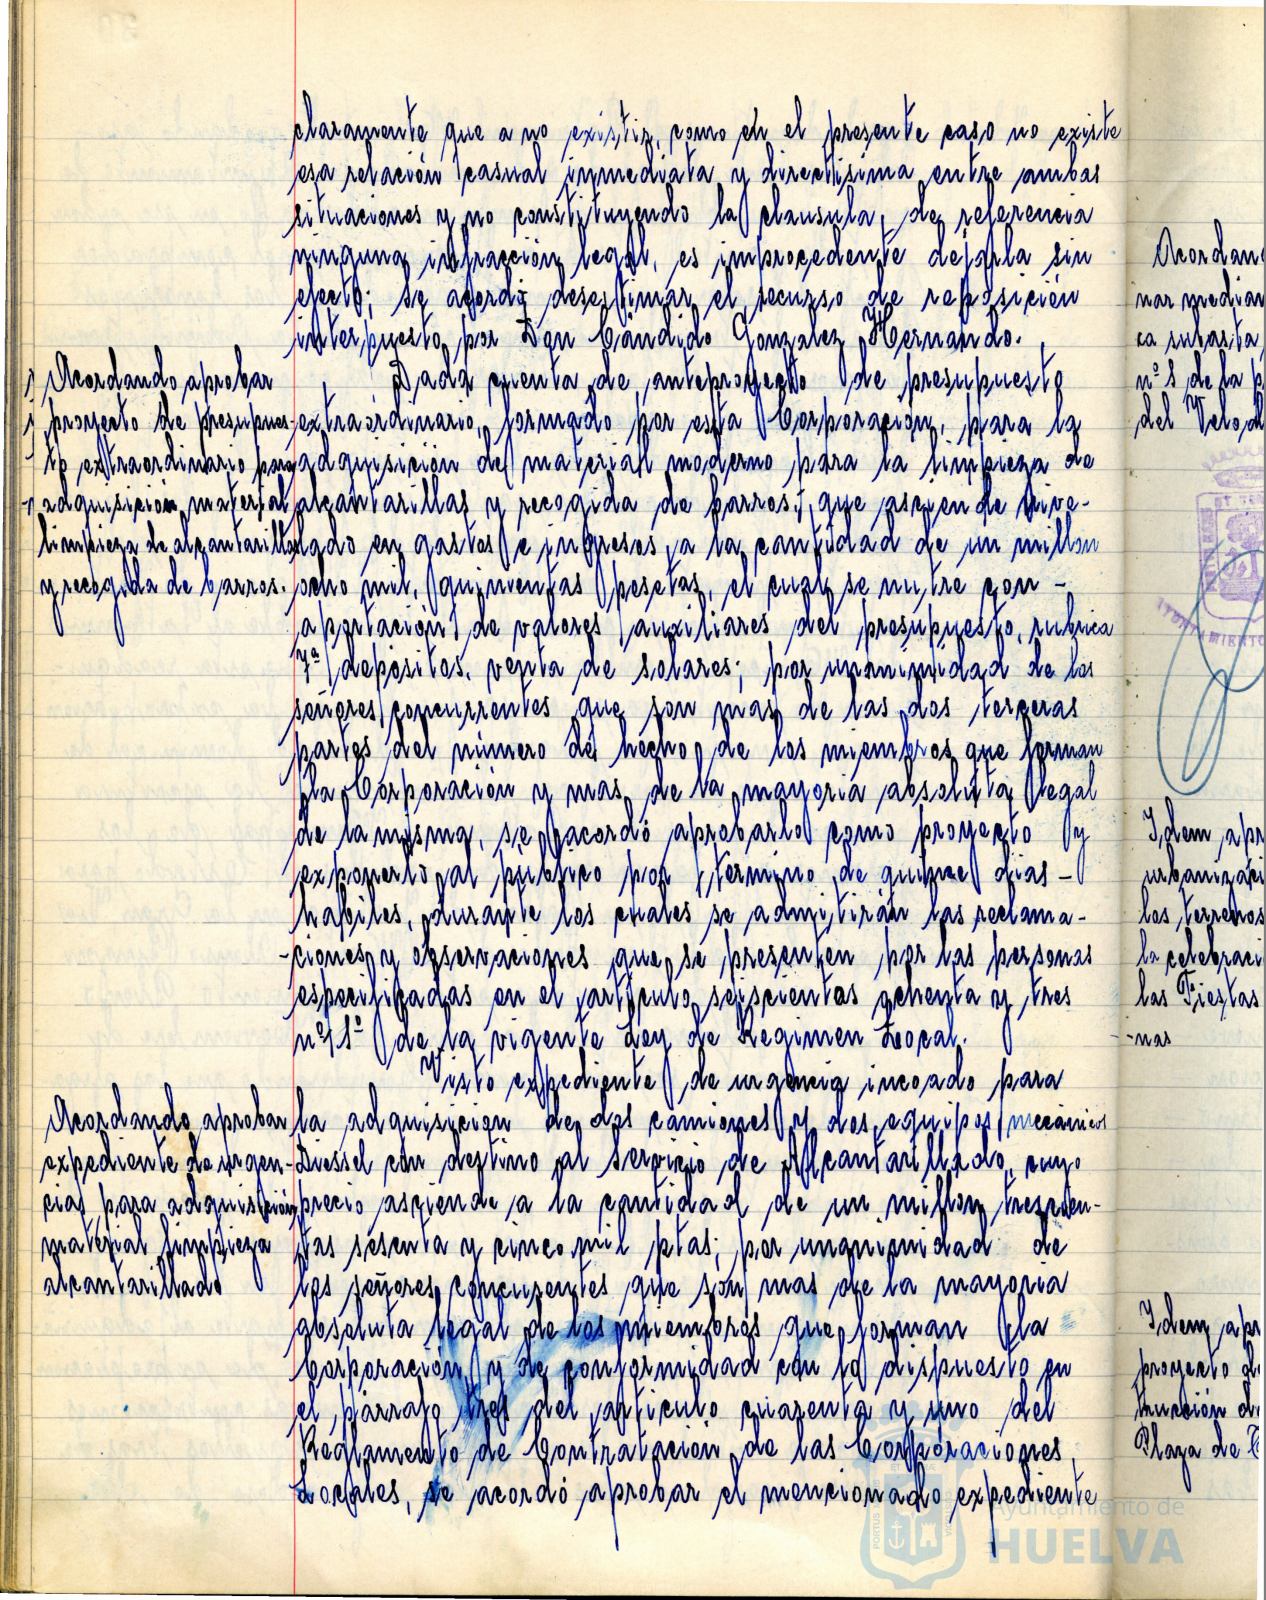 claramente que a no existir, como en el presente caso no existe
esa relación casual inmediata y directisima entre ambas
situaciones y no constituyendo la clausula, de referencia
ninguna infracción legal, es improcedente dejarla sin
efecto; se acordó desestimar el recurso de reposición
interpuesto por Don Cándido Gonzalez Hernando.
Acordando aprobar
proyecto de presupues-
to extraordinario para
adquisición material
limpieza de alcantarillas
y recogida de barros.
Dada cuenta de anteproyecto de presupuesto
extraordinario, formado por esta Corporación, para la
adquisición de material moderno para la limpieza de
alcantarillas y recogida de barros, que asciende nive-
lado en gastos e ingresos a la cantidad de un millon
ocho mil, quinientas pesetas, el cual se nutre con -
aportación de valores auxiliares del presupuesto, rubrica
7ª depósitos, venta de solares; por unanimidad de los
señores concurrentes que son mas de las dos terceras
partes del número de hecho de los miembros que forman
la Corporación y mas de la mayoria absoluta legal
de la misma, se acordó aprobarlo como proyecto y
exponerlo al público por termino de quince dias -
habiles, durante los cuales se admitirán las reclama-
-ciones y observaciones que se presenten por las personas
especificadas en el articulo seiscientos ochenta y tres
nº 1º de la vigente Ley de Regimen Local.
Acordando aprobar
expediente de urgen-
cia para adquisición
material limpieza
alcantarillado
Visto expediente de urgencia incoado para
la adquisicion de dos camiones y dos equipos mecánicos
Diessel con destino al servicio de Alcantarillado, cuyo
precio asciende a la cantidad de un millon trescien-
tas sesenta y cinco mil ptas; por unanimidad de
los señores concurentes que son mas de la mayoria
absoluta legal de los miembros que forman la
Corporación y de conformidad con lo dispuesto en
el párrafo tres del articulo cuarenta y uno del
Reglamento de Contratación de las Corporaciones
Locales, se acordó aprobar el mencionado expediente
Acordan
nar median
ca subasta
nº 8 de la p
del Velod
Idem apr
urbanizaci
los terrenos
la celebraci
las Fiestas
-nas
Idem apr
proyecto de
trucción d
Plaza de
Ayuntamiento de
HUELVA